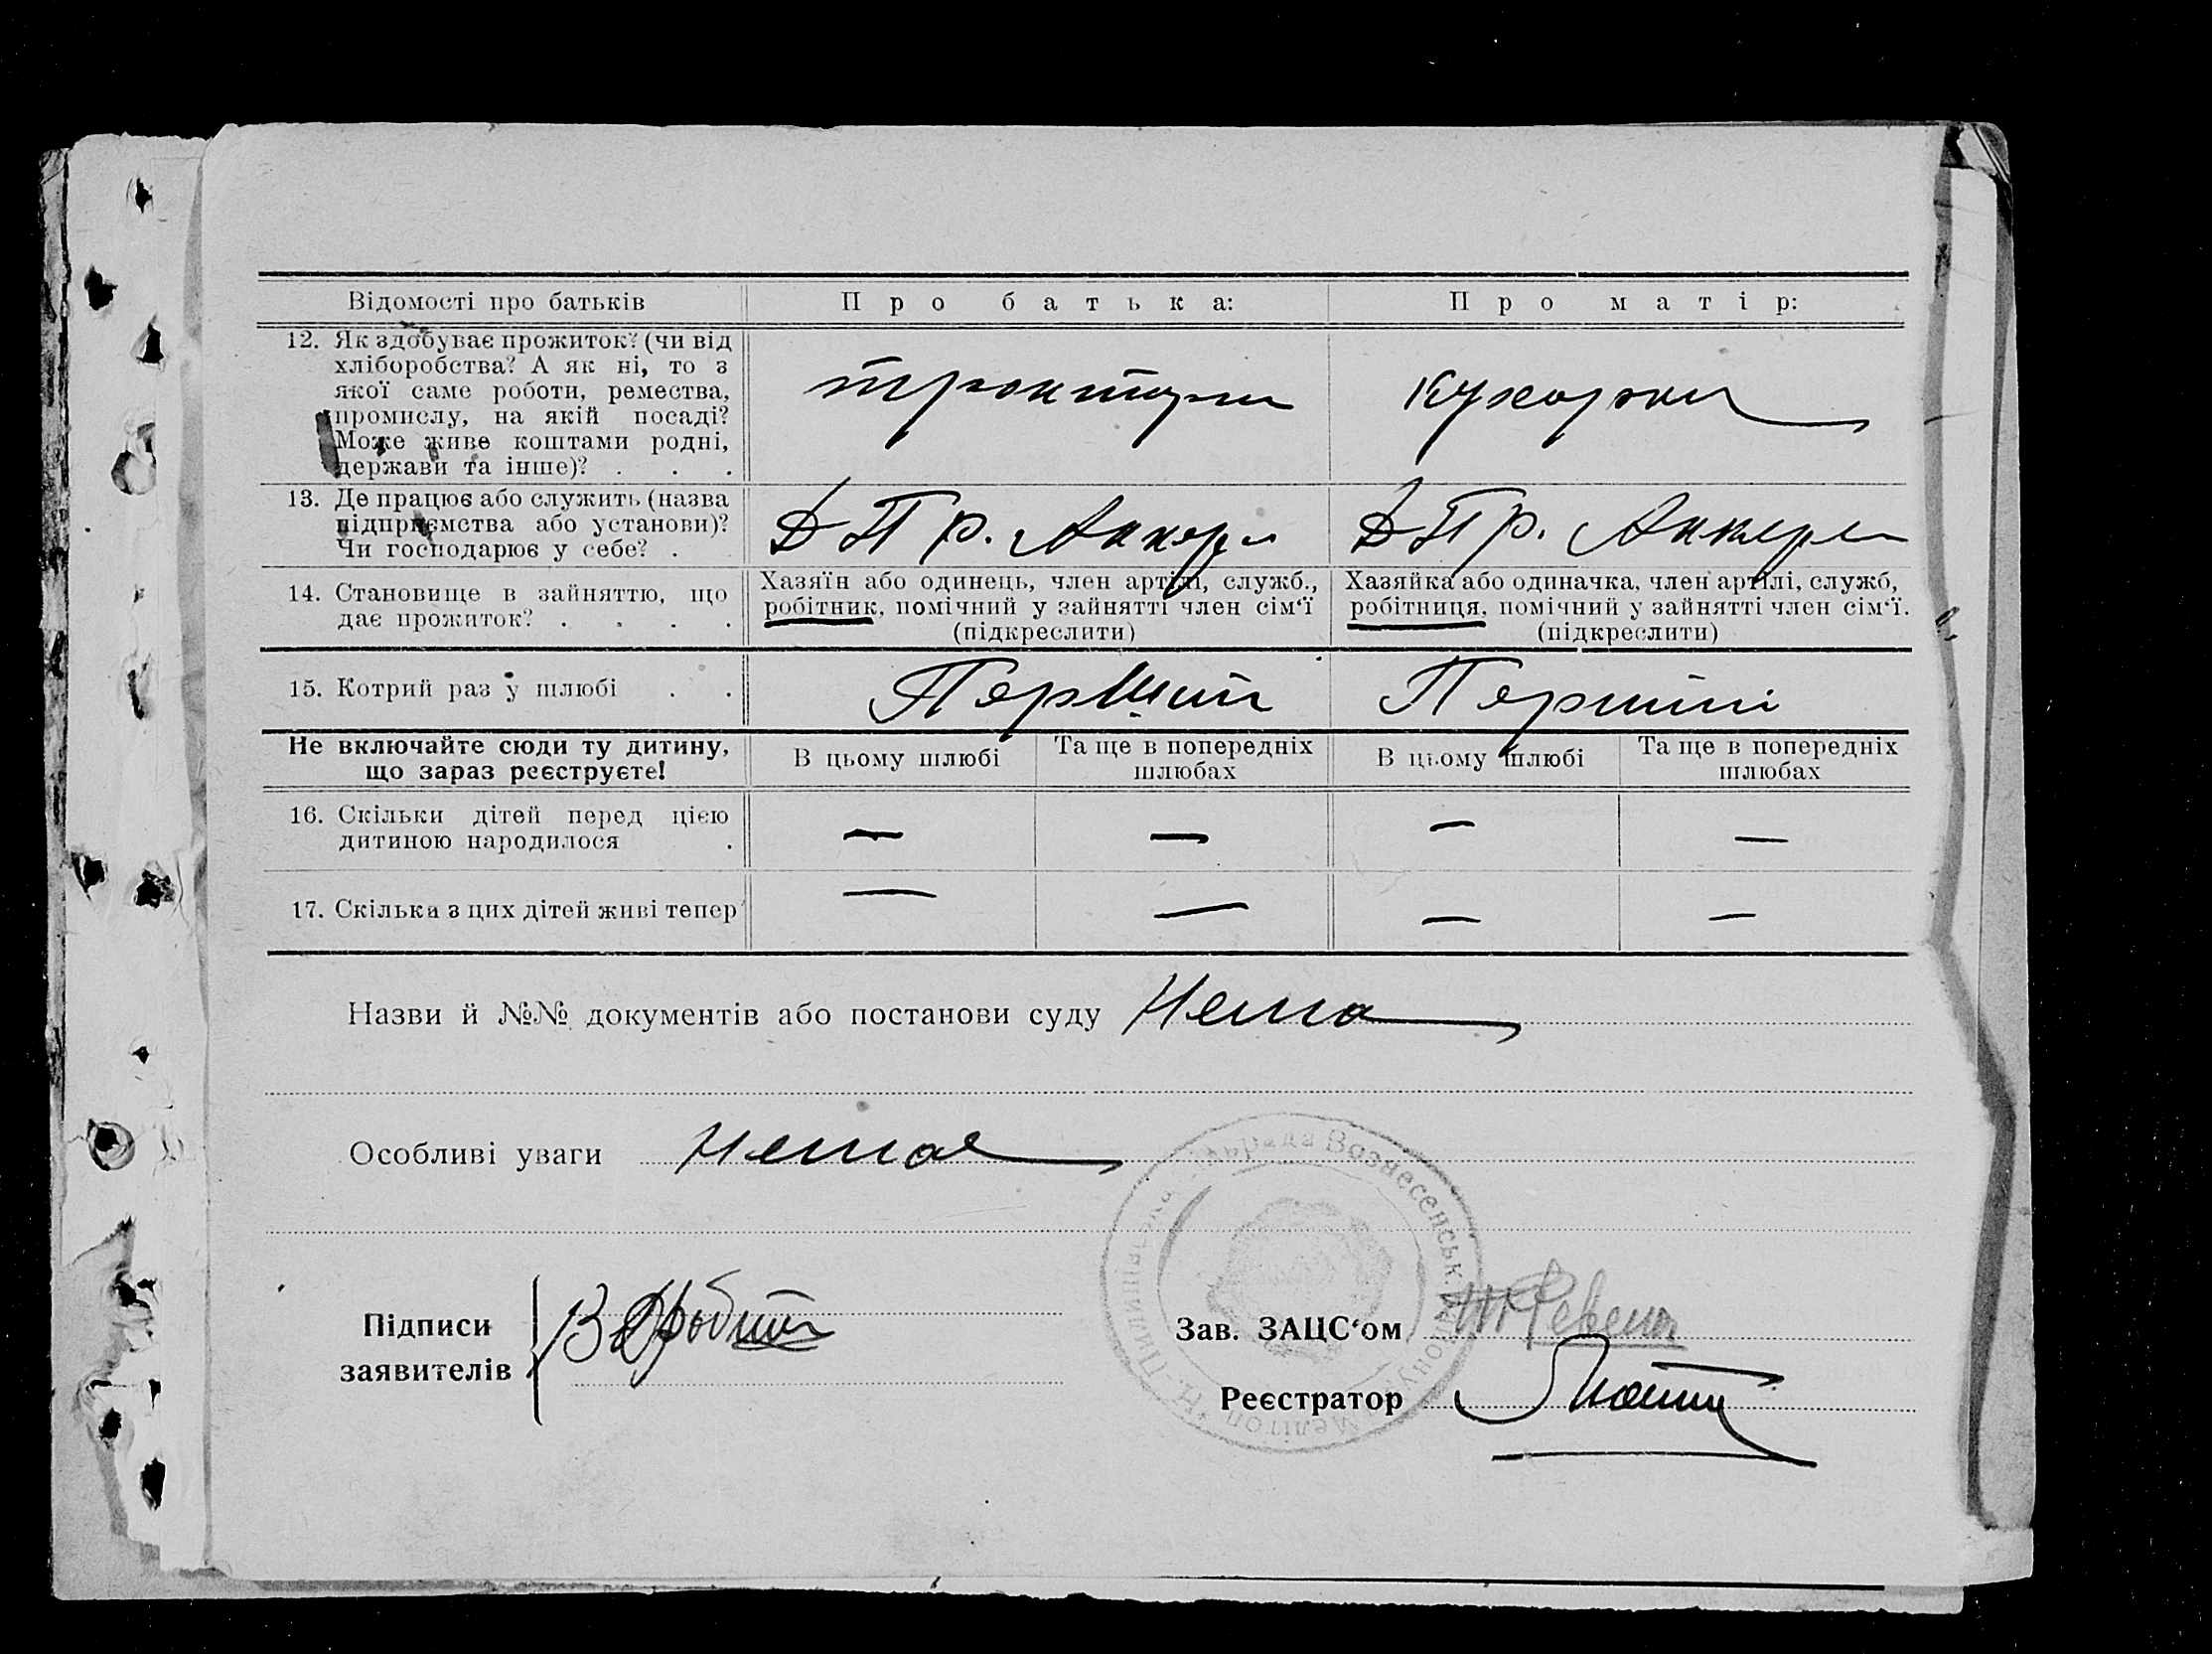 Відомості про батьків
Про батька:
Про матір:
12. Як здобуває прожиток? (чи від
хліборобства? А як ні, то з
якої саме роботи, ремества,
промислу, на якій посаді?
Може живе коштами родні,
держави та інше)? . . .
кухарка
13. Де працює або служить (назва
підприємства або установи)?
Чи господарює у себе? .
14. Становище в зайняттю, що
дає прожиток? . . . .
Хазяїн або одинець, член артілі, служб.,
робітник, помічний у зайнятті член сім‘ї
(підкреслити)
Хазяйка або одиначка, член артілі, служб,
робітниця, помічний у зайнятті член сім‘ї.
(підкреслити)
15. Котрий раз у шлюбі . .
Перший
Перший
Не включайте сюди ту дитину,
що зараз реєструєте!
В цьому шлюбі
Та ще в попередніх
шлюбах
В цьому шлюбі
Та ще в попередніх
шлюбах
16. Скільки дітей перед цією
дитиною народилося .
— — — —
17. Скілька з цих дітей живі тепер
— — — —
Назви й №№ документів або постанови суду Нема
Особливі уваги Немає
Підписи
заявителів
Зав. ЗАЦС‘ом
Реєстратор
Вознесенськ.